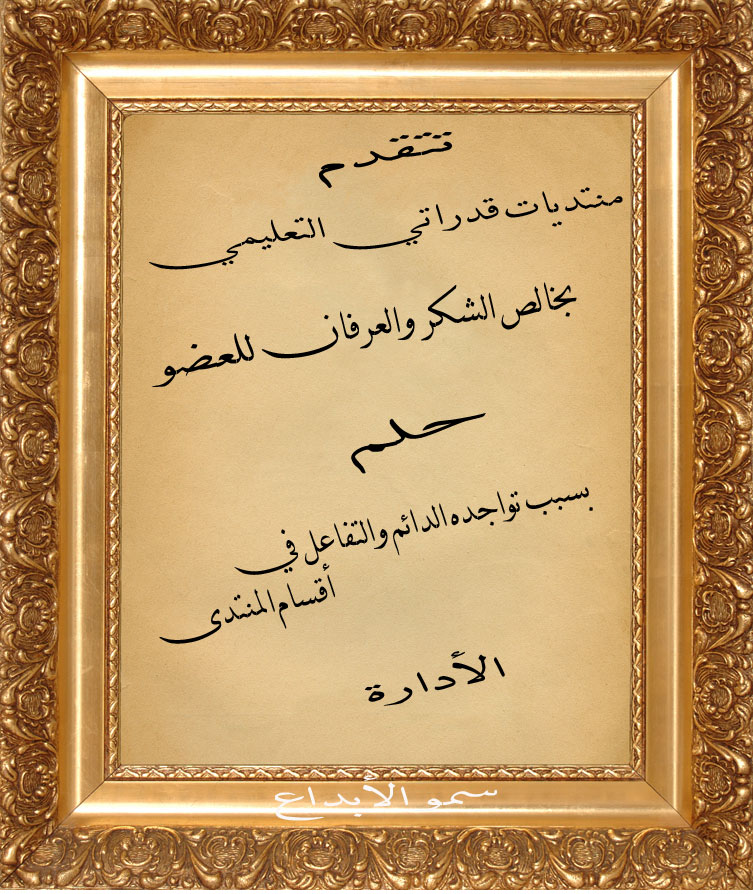 تتقدم
منتديات قدراتي التعليمي
بخالص الشكر والعرفان للعضو
حلم
بسبب تواجده الدائم والتفاعل في
أقسام المنتدى
الأدارة
سمو الأبداع